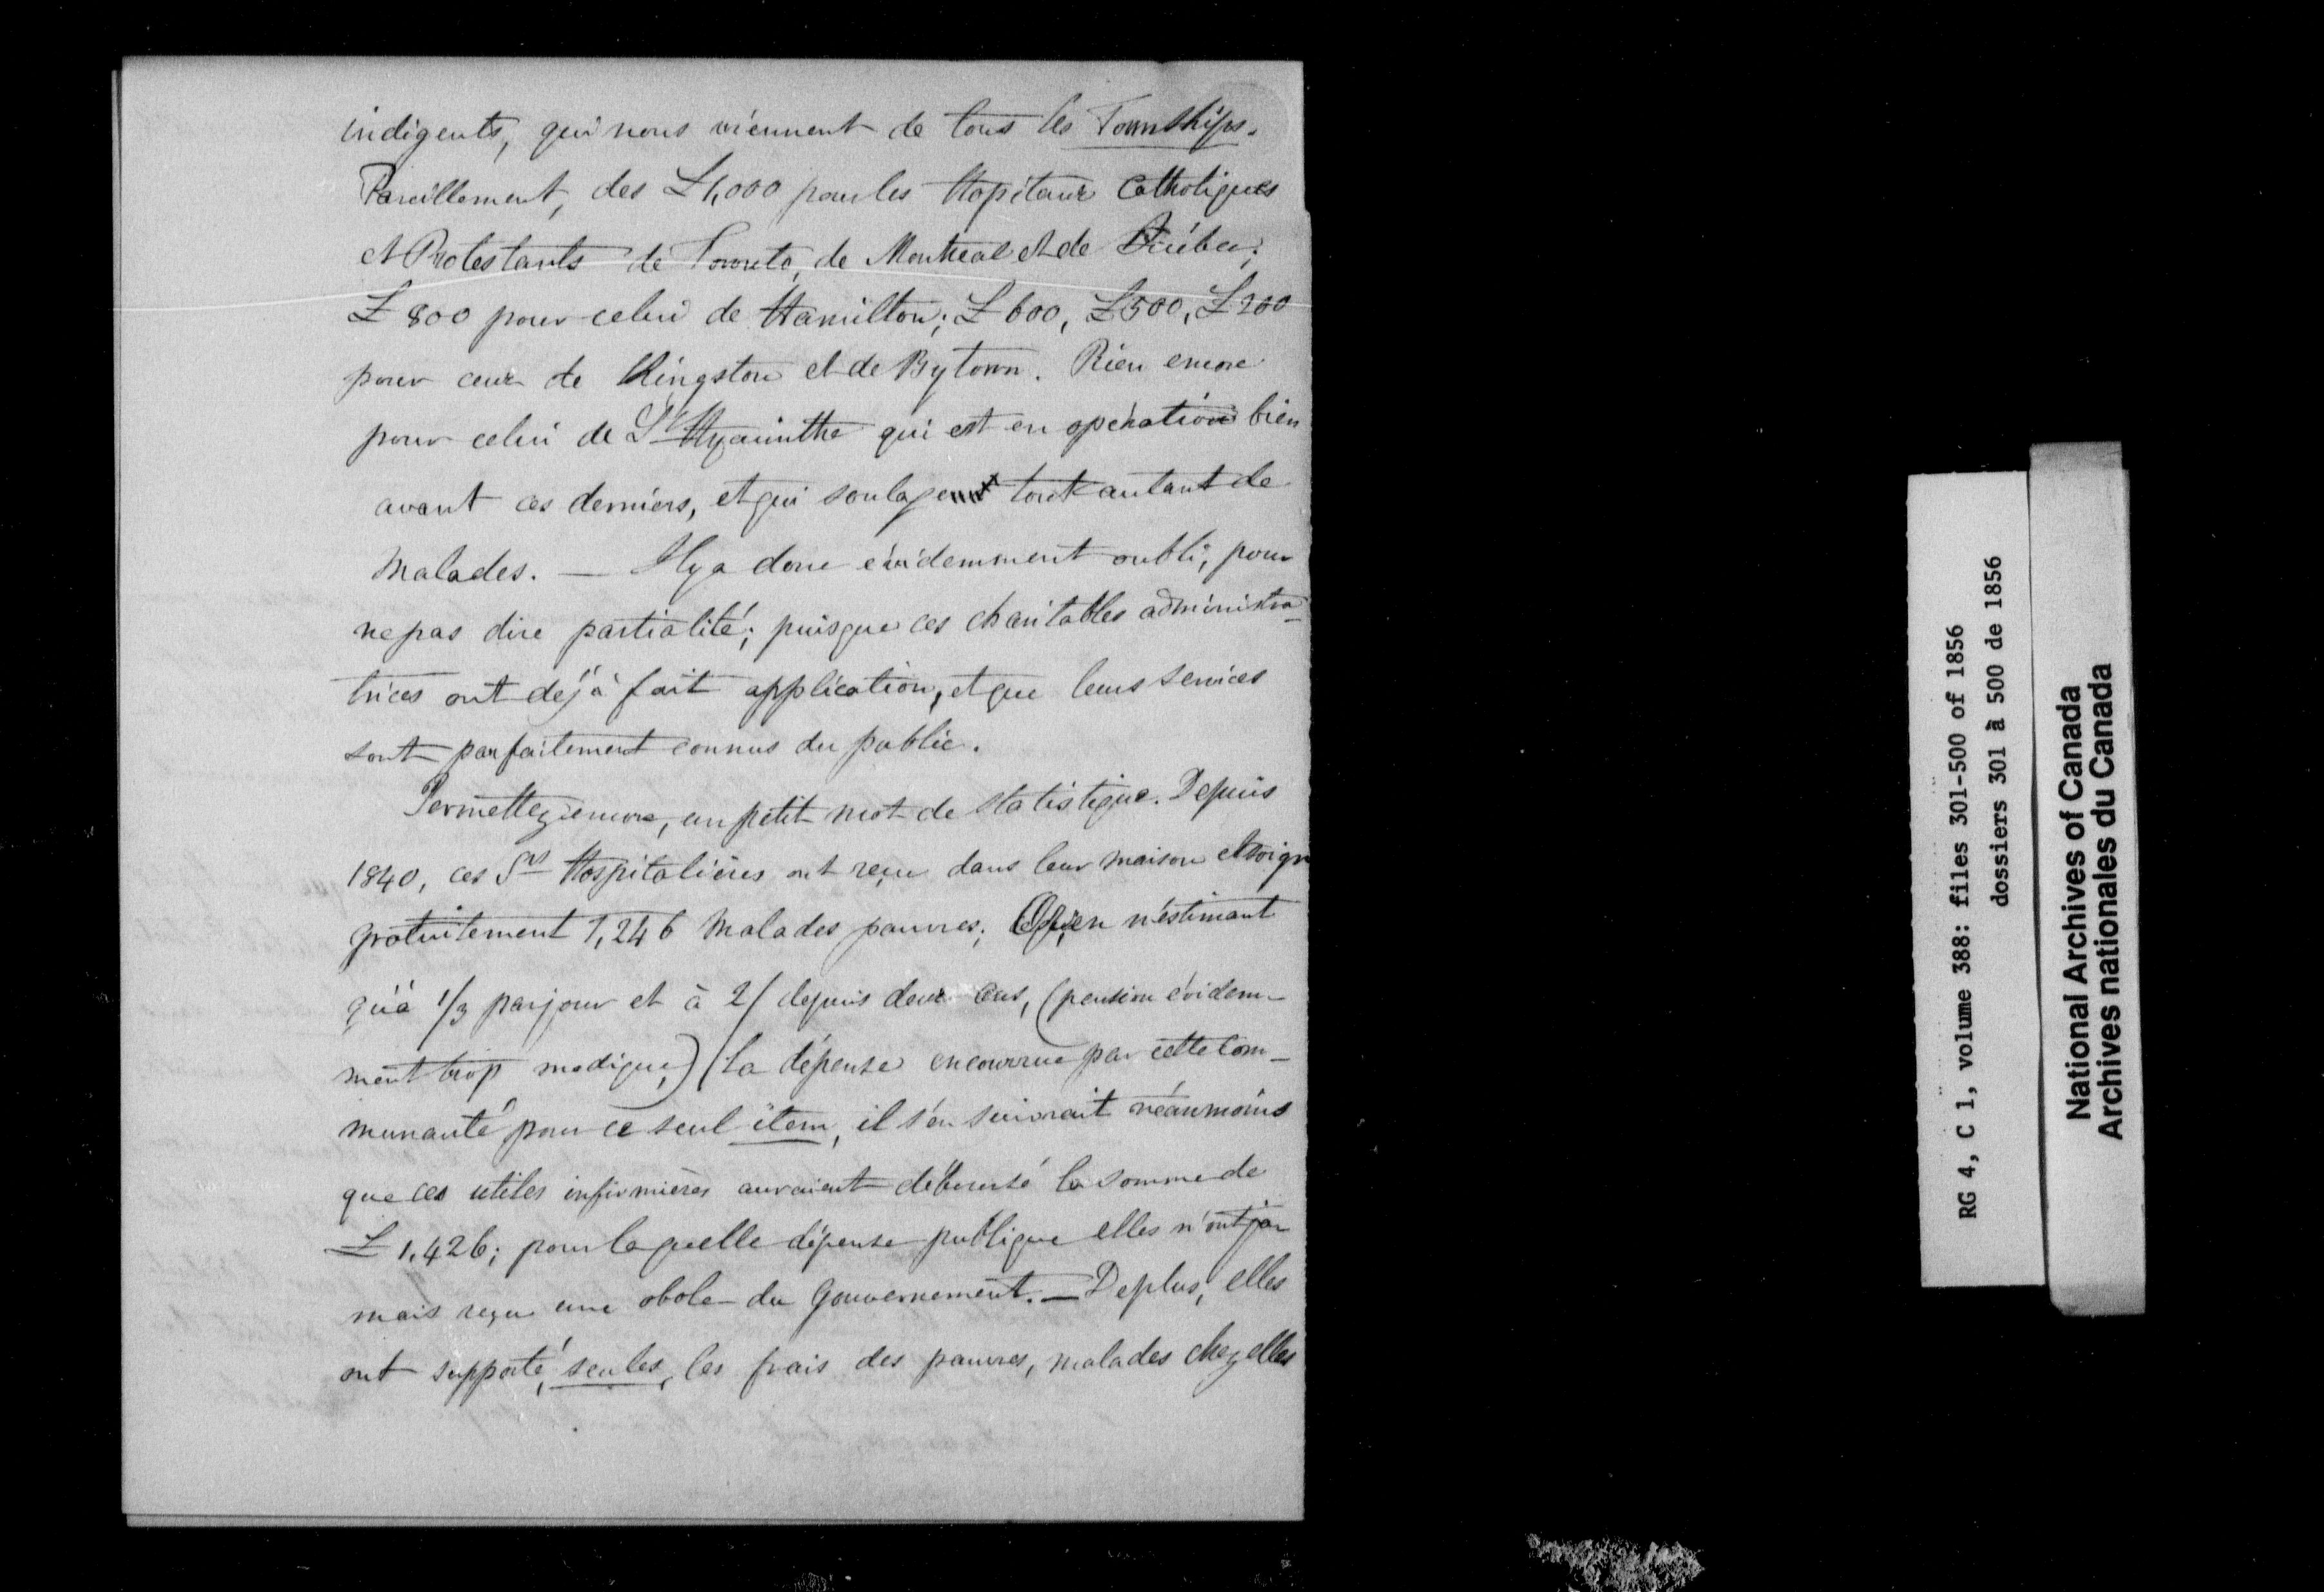 indigents, qui nous viennent de tous les Townships.
Pareillement, des £1,000 pour les Hopitaux Catholiques
et Protestants de Toronto, de Montreal et de Québec;
£800 pour celui de Hamilton; £600, £500, £200
pour ceux de Kingston et de Bytown. Rien encore
pour celui de St Hyacinthe qui est en opération bien
avant ces derniers, et qui soulage tout autant de
Malades. — Il y a donc évidemment oubli, pour
ne pas dire partialité; puisque ces charitables administra-
trices ont déjà fait application, et que leurs services
sont parfaitement connus du public.
Permettez encore, un petit mot de statistique. Depuis
1840, ces Srs Hospitalières ont reçu dans leur maison et soign
gratuitement 1,246 Malades pauvres; Or, en n'estimant
qu'à 1/3 par jour et à 2/ depuis deux ans, (pension évidem-
ment trop modique,) la dépense encourrue par cette Com-
munauté pour ce seul item, il s'en suivrait néanmoins
que ces utiles infirmières auraient déboursé la somme de
£1,426; pour laquelle dépense publique elles n'ont ja-
mais reçu une obole du Gouvernement. — De plus, elles
ont supporté, seules, les frais des pauvres, malades chez elles
RG 4, C 1, volume 388: files 301-500 of 1856
dossiers 301 à 500 de 1856
National Archives of Canada
Archives nationales du Canada